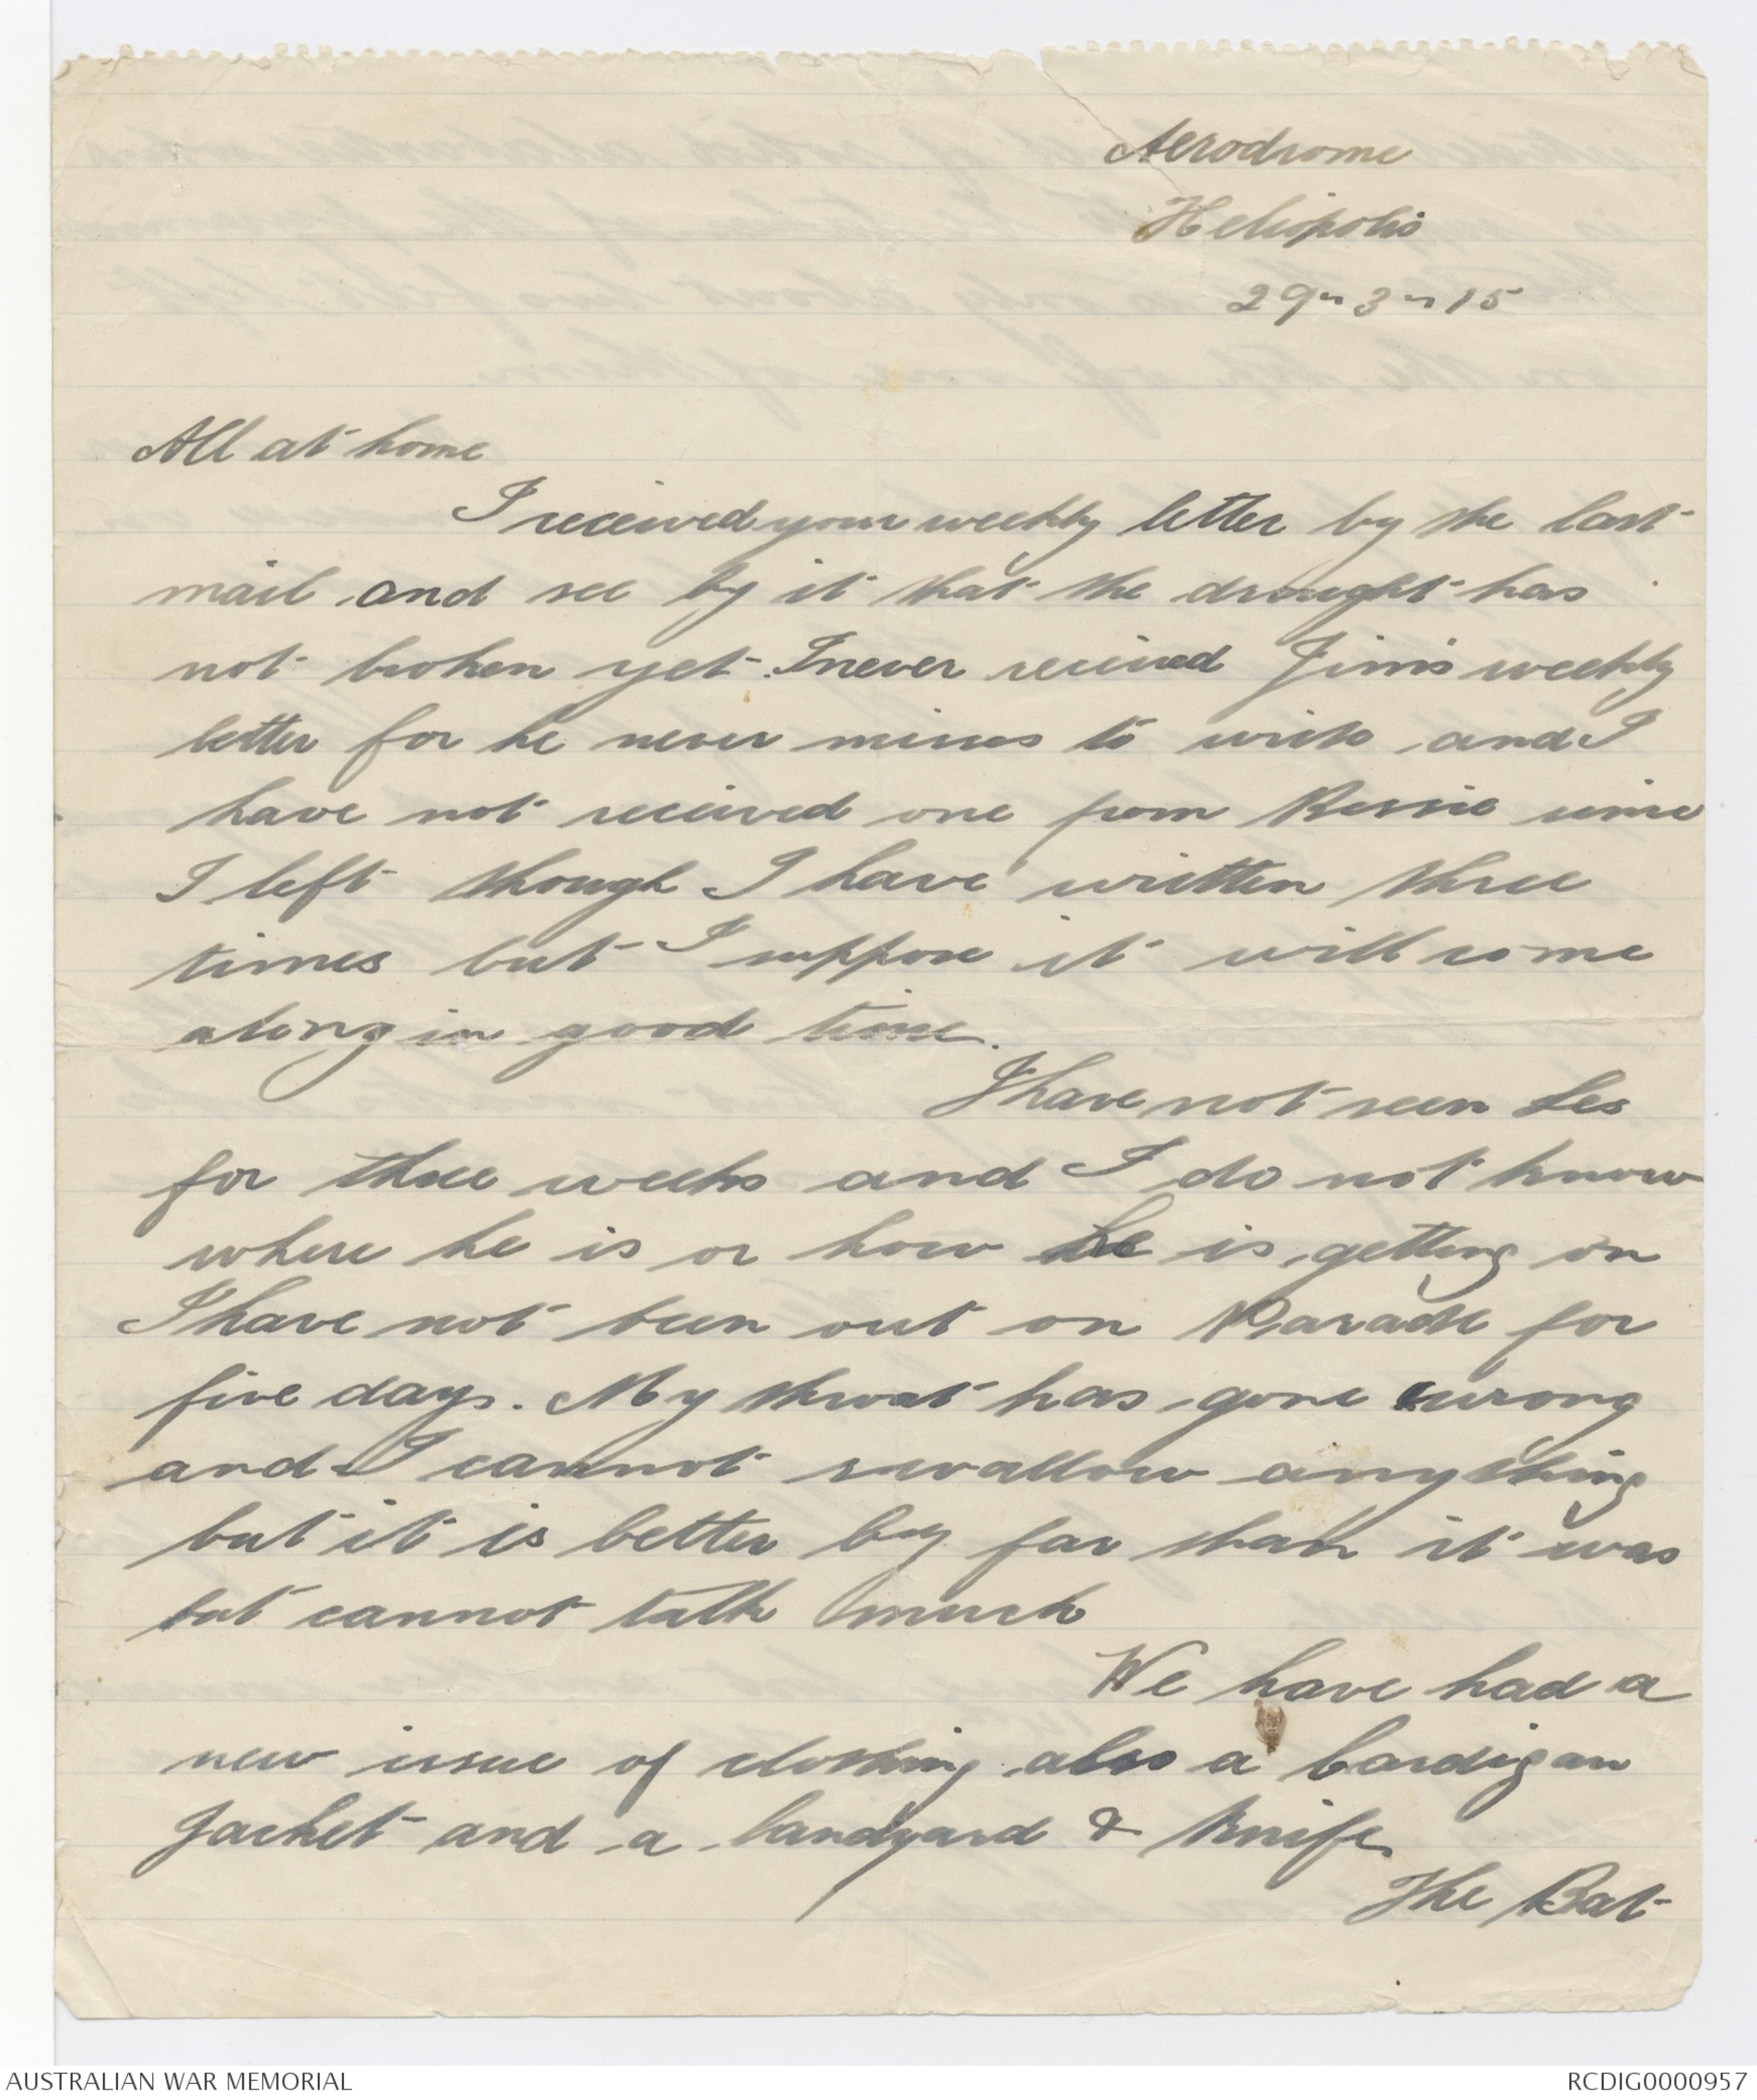 Aerodrome
Heliopolis
29-3-15
All at home
I received your weekly letter by the last
mail and see by it that the drought has
not broken yet. I never received Jim's weekly
letter for he never misses to write and I
have not received one from Ressie since
I left though I have written three
times but I suppose it will come
along in good time.
I have not seen Les
for three weeks and I do not know
where he is or how he is getting on
I have not been out on Parade for
five days. My throat has gone wrong
and I cannot swallow anything
but it is better by far than it was
but cannot talk much
We have had a
new issue of clothing also a Cardigan
Jacket and a landyard & Knife
The Bat-
AUSTRALIAN WAR MEMORIAL
RCDIG0000957